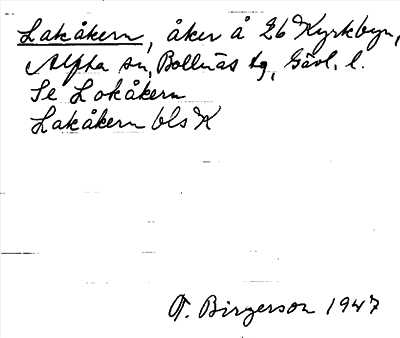 Lakåkern, åker å Eb Kyrkbyn,
Alfta sn, Bollnäs tg, Gävl. l.
Se Lokåkern
Lakåkern bls K
T. Birgerson 1947